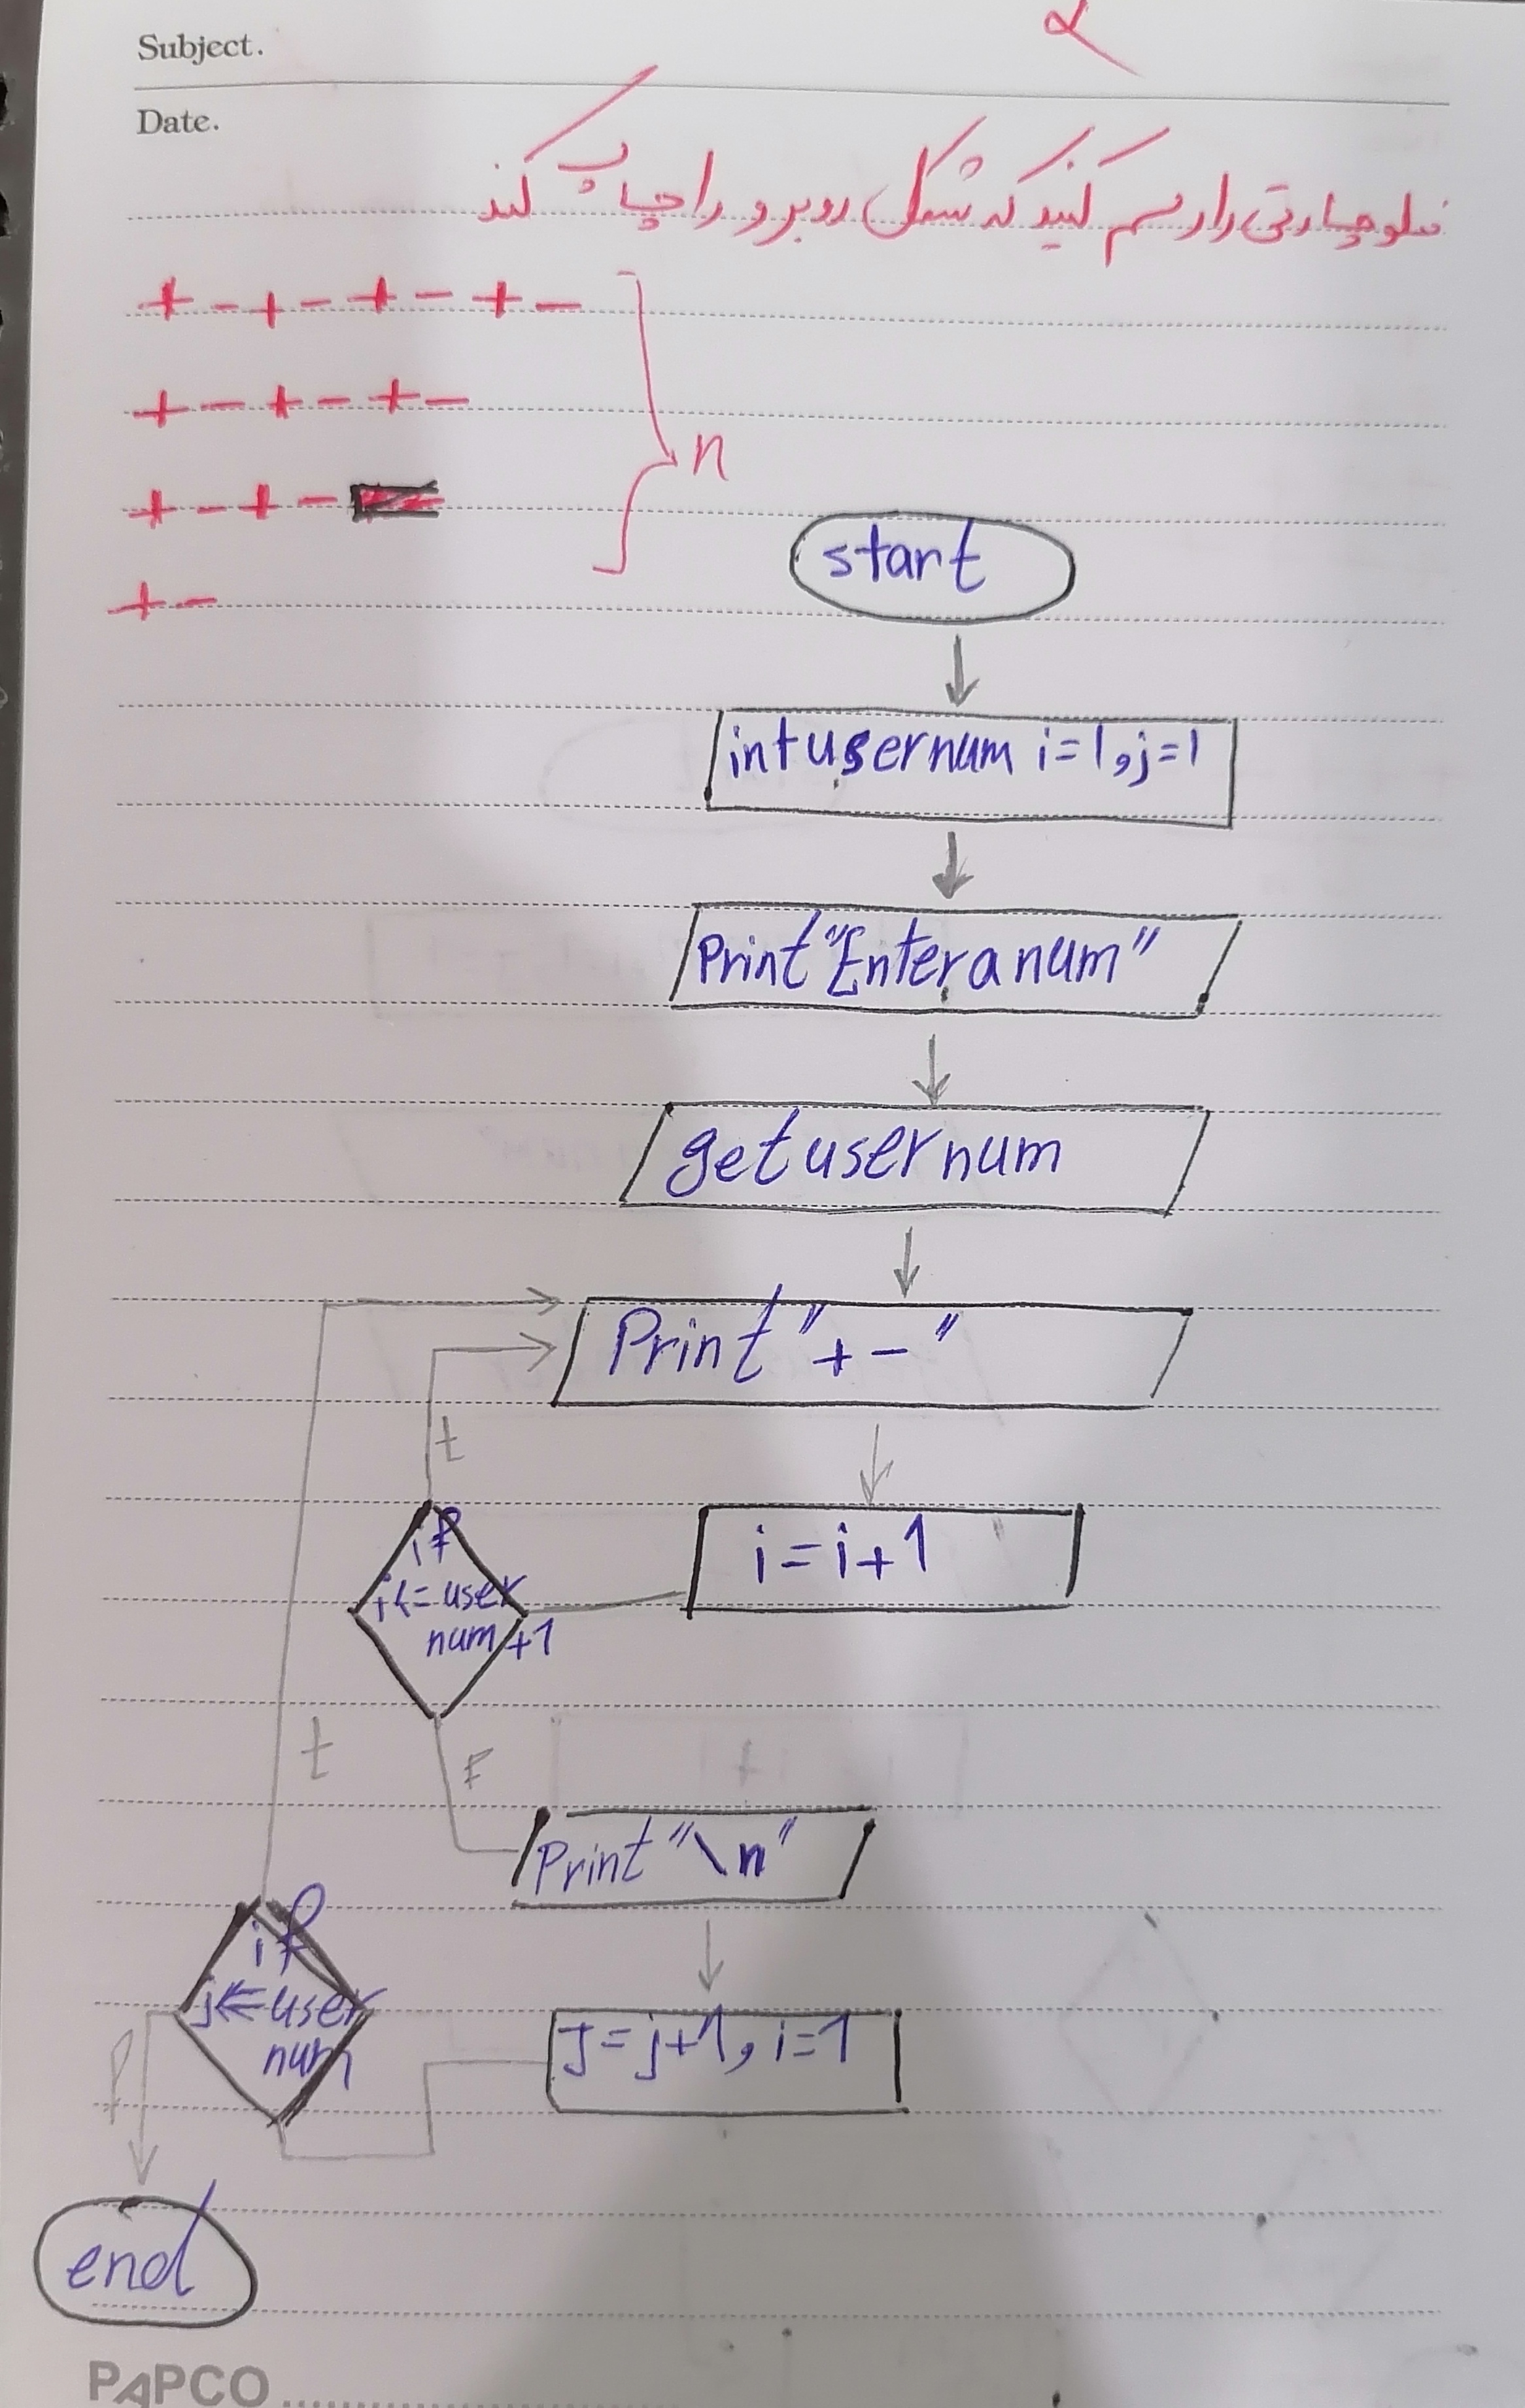 Subject.
۲
Date.
فلوچارتی را رسم کنید که شکل روبرو را چاپ کند
+ - + - + - + -
+ - + - + -
+ - + -
+ -
n
start
int usernum i=1,j=1
Print "Enter a num"
get usernum
Print "+ - "
t
i=i+1
if
i<=user
num+1
t
F
Print "\n"
if
j<=user
num
J=j+1, i=1
f
end
PAPCO